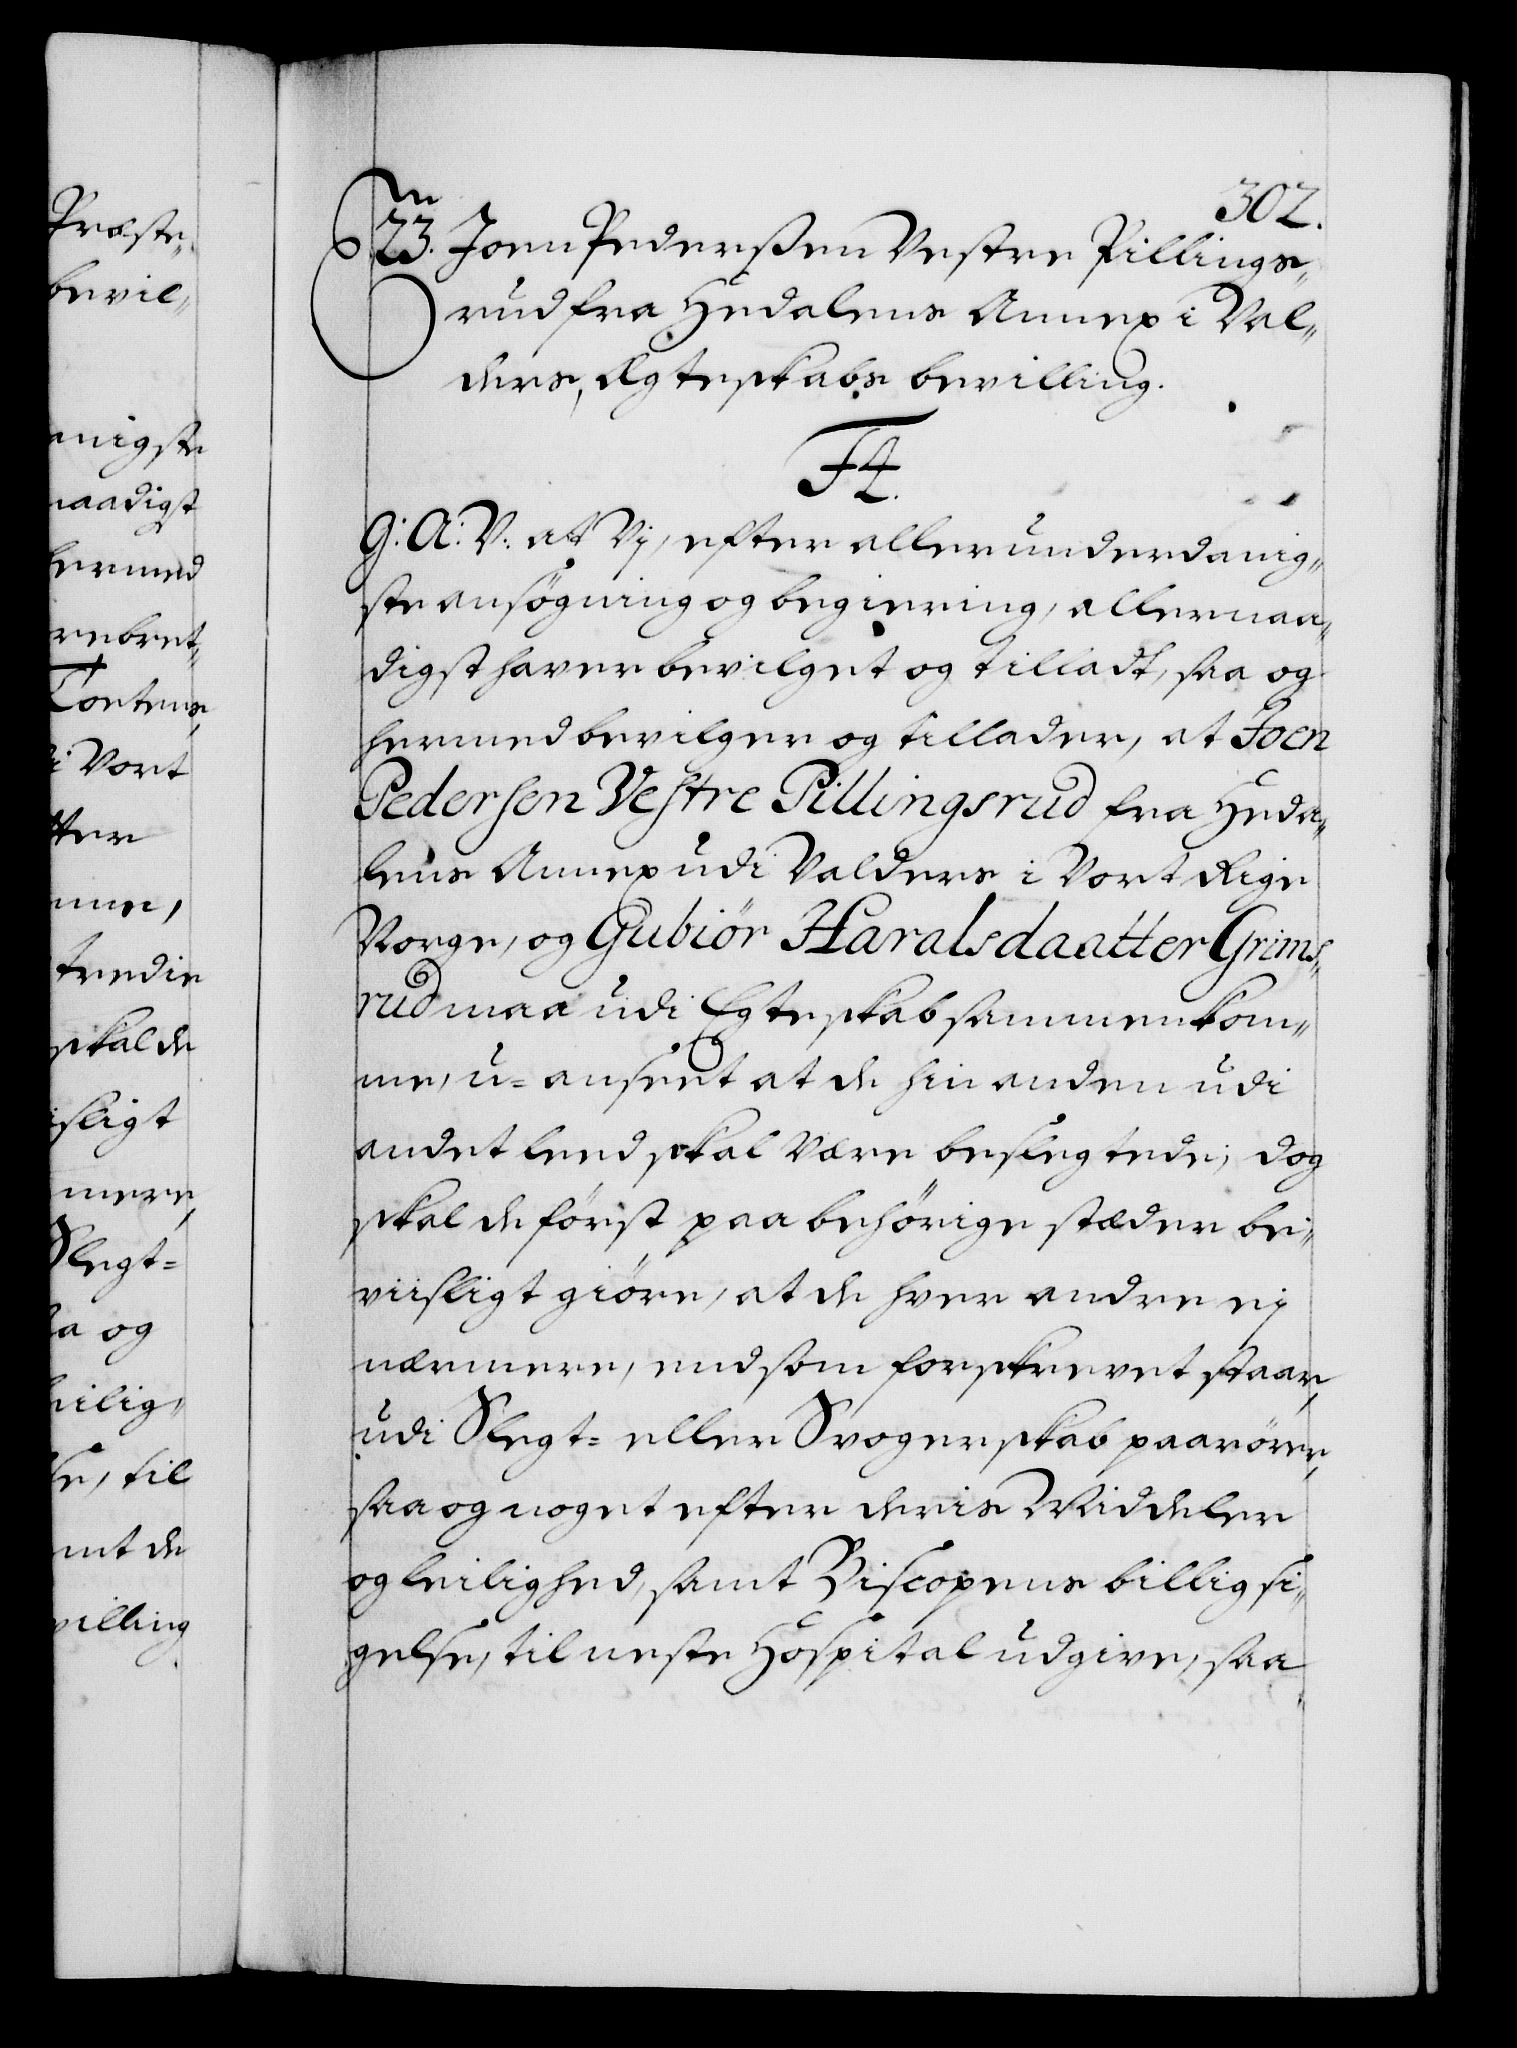 Præste-
bevil-
anigste
naadigst
hermed
rebret-
Tortens,
i Vort
tter
mme,
tredie
skal de
isligt
mere,
Slegt-
la og
heilig-
se, til
mt de
villing
302.
23. Joen Pederssen Vestre Pillings-
rud fra Hedalens Annex i Val-
ders, Ægteskabs bevilling.
F4.
G: A: V: at Vj, efter allerunderdanig-
ste ansøgning og begiering, allernaa-
digst haver bevilget og tilladt, saa og
hermed bevilger og tillader, at Joen
Pedersen Vestre Pillingsrud fra Heda-
lens Annex udi Valders i Vort Rige
Norge, og Gubiör Haralsdaatter Grims-
rud maa udi Egteskab sammenkom-
me, u-anseet at de hinanden udi
andet leed skal være beslegtede; dog
skal de först paa behörige stæder be-
viisligt giöre, at de hver andre ej
nærmere, end som forskrevet staar,
udi Slegt- eller Svogerskab paarörer,
saa og noget efter deris Middeler
og leilighed, samt Biscopens billig si-
gelse, til neste Hospital udgive, saa